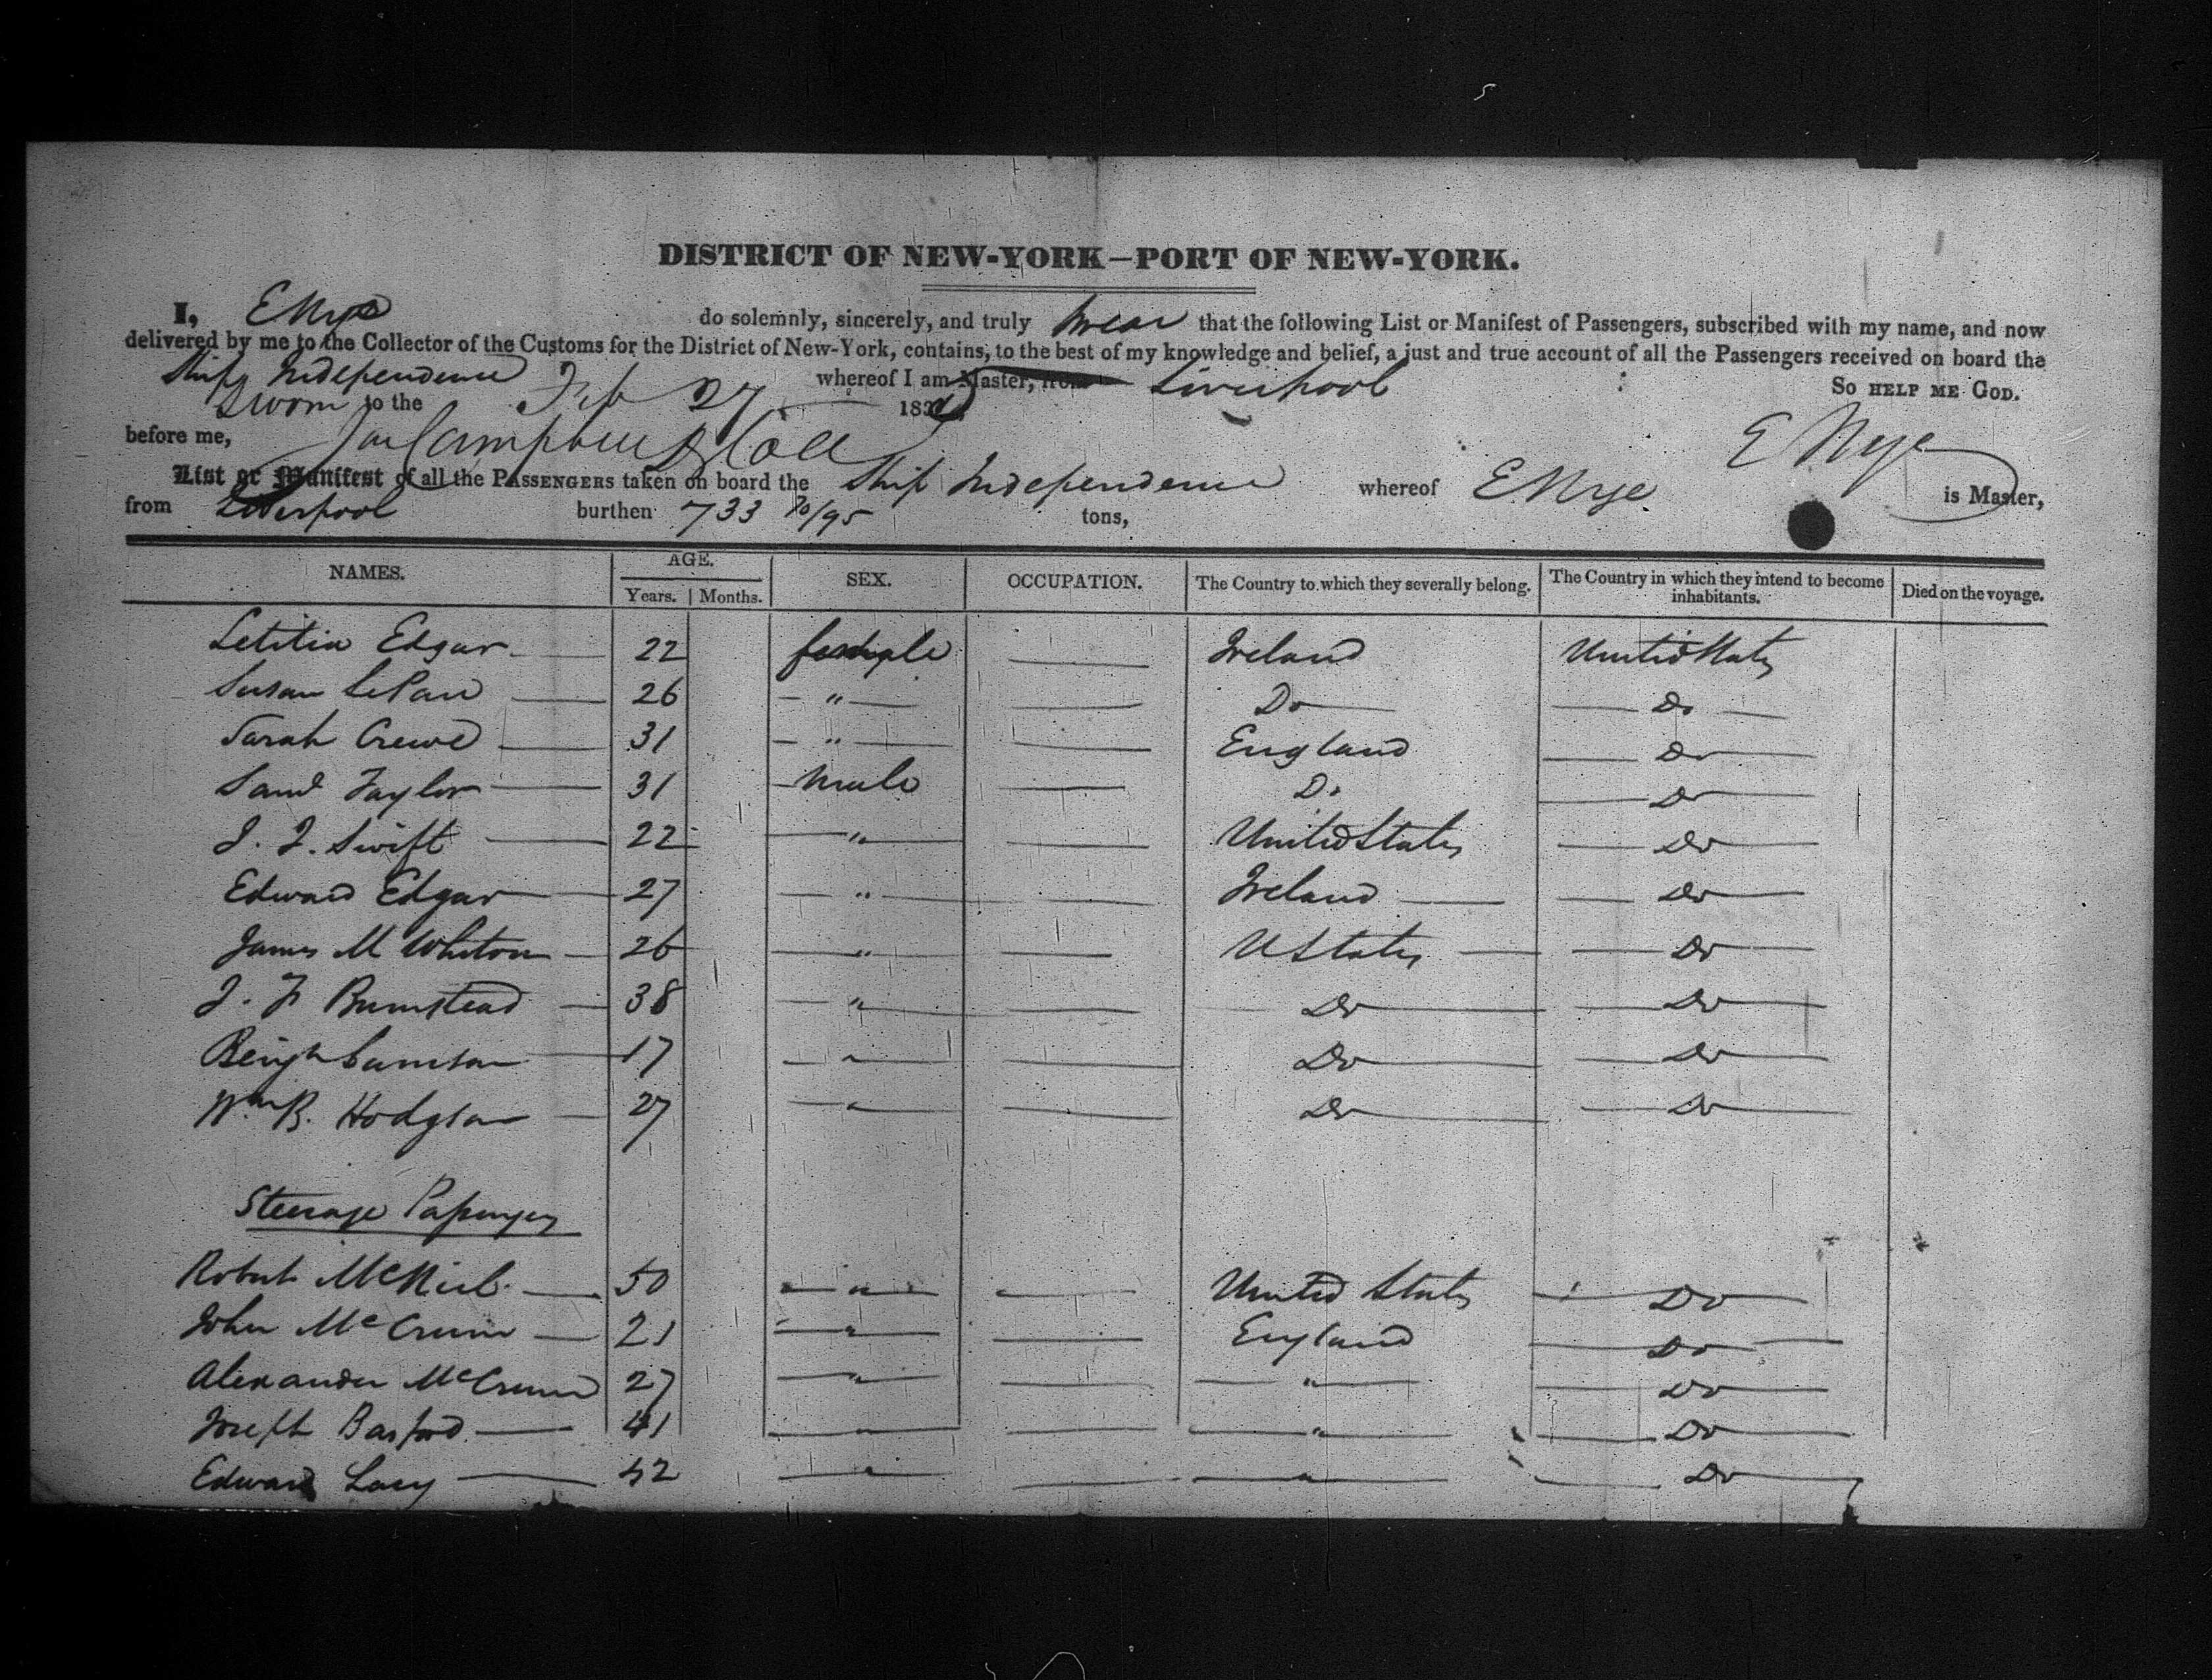 DISTRICT OF NEW-YORK—PORT OF NEW-YORK.
I, E Nye do solemnly, sincerely, and truly swear that the following List or Manifest of Passengers, subscribed with my name, and now
delivered by me to the Collector of the Customs for the District of New-York, contains, to the best of my knowledge and belief, a just and true account of all the Passengers received on board the
Ship Independence whereof I am Master, from Liverpool So HELP ME GOD.
Sworn to the Feb 27 183
before me, Coll E Nye
List or Manifest of all the PASSENGERS taken on board the Ship Independence whereof E Nye is Master,
from Liverpool burthen 733 70/95 tons,
NAMES. AGE. SEX. OCCUPATION. The Country to which they severally belong. The Country in which they intend to become inhabitants. Died on the voyage.
Years. Months.
Letitia Edgar 22 female Ireland United States
Susan 26 " Do Do
Sarah Crewe 31 " England Do
Saml Taylor 31 male Do Do
J. J. Swift 22 " United States Do
Edward Edgar 27 " Ireland Do
James M Whiton 26 " U States Do
J. F Bumstead 38 " Do Do
17 " Do Do
Wm R. Hodgson 27 " Do Do
Steerage Passengers
Robert 50 " United States Do
John McCrum 21 " England Do
Alexander McCrum 27 " " Do
Joseph Basford 41 " " Do
Edward Lacy 42 " " Do